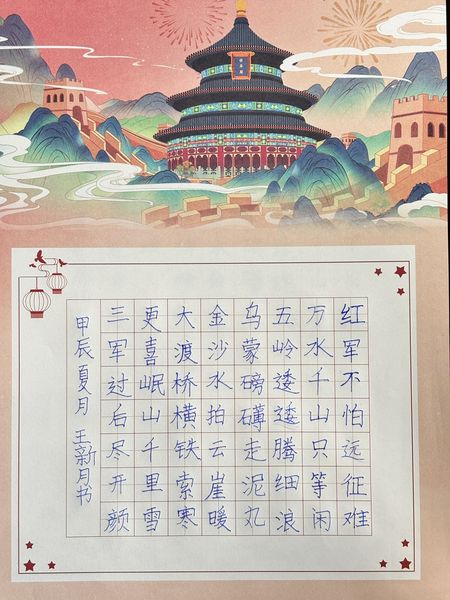 红军不怕远征难
万水千山只等闲
五岭逶逶腾细浪
乌蒙磅礴走泥丸
金沙水拍云崖暖
大渡桥横铁索寒
更喜岷山千里雪
三军过后尽开颜
甲辰夏月 王新月书